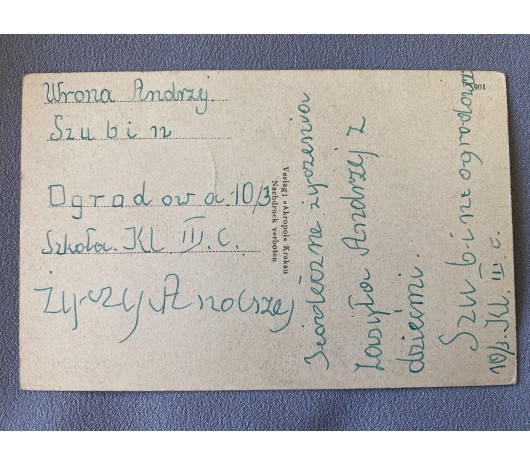 Wrona Andrzej
Szubin
Ogradowa 10/3
Szkoła. Kl III. c.
życzy Andszej
Verlag: »Akropol« Krakau
Nachdruck verboten
życzenia
zasyła Andrzej z
dziećmi.
Szubin ogradowa
10/3. Kl. III c.